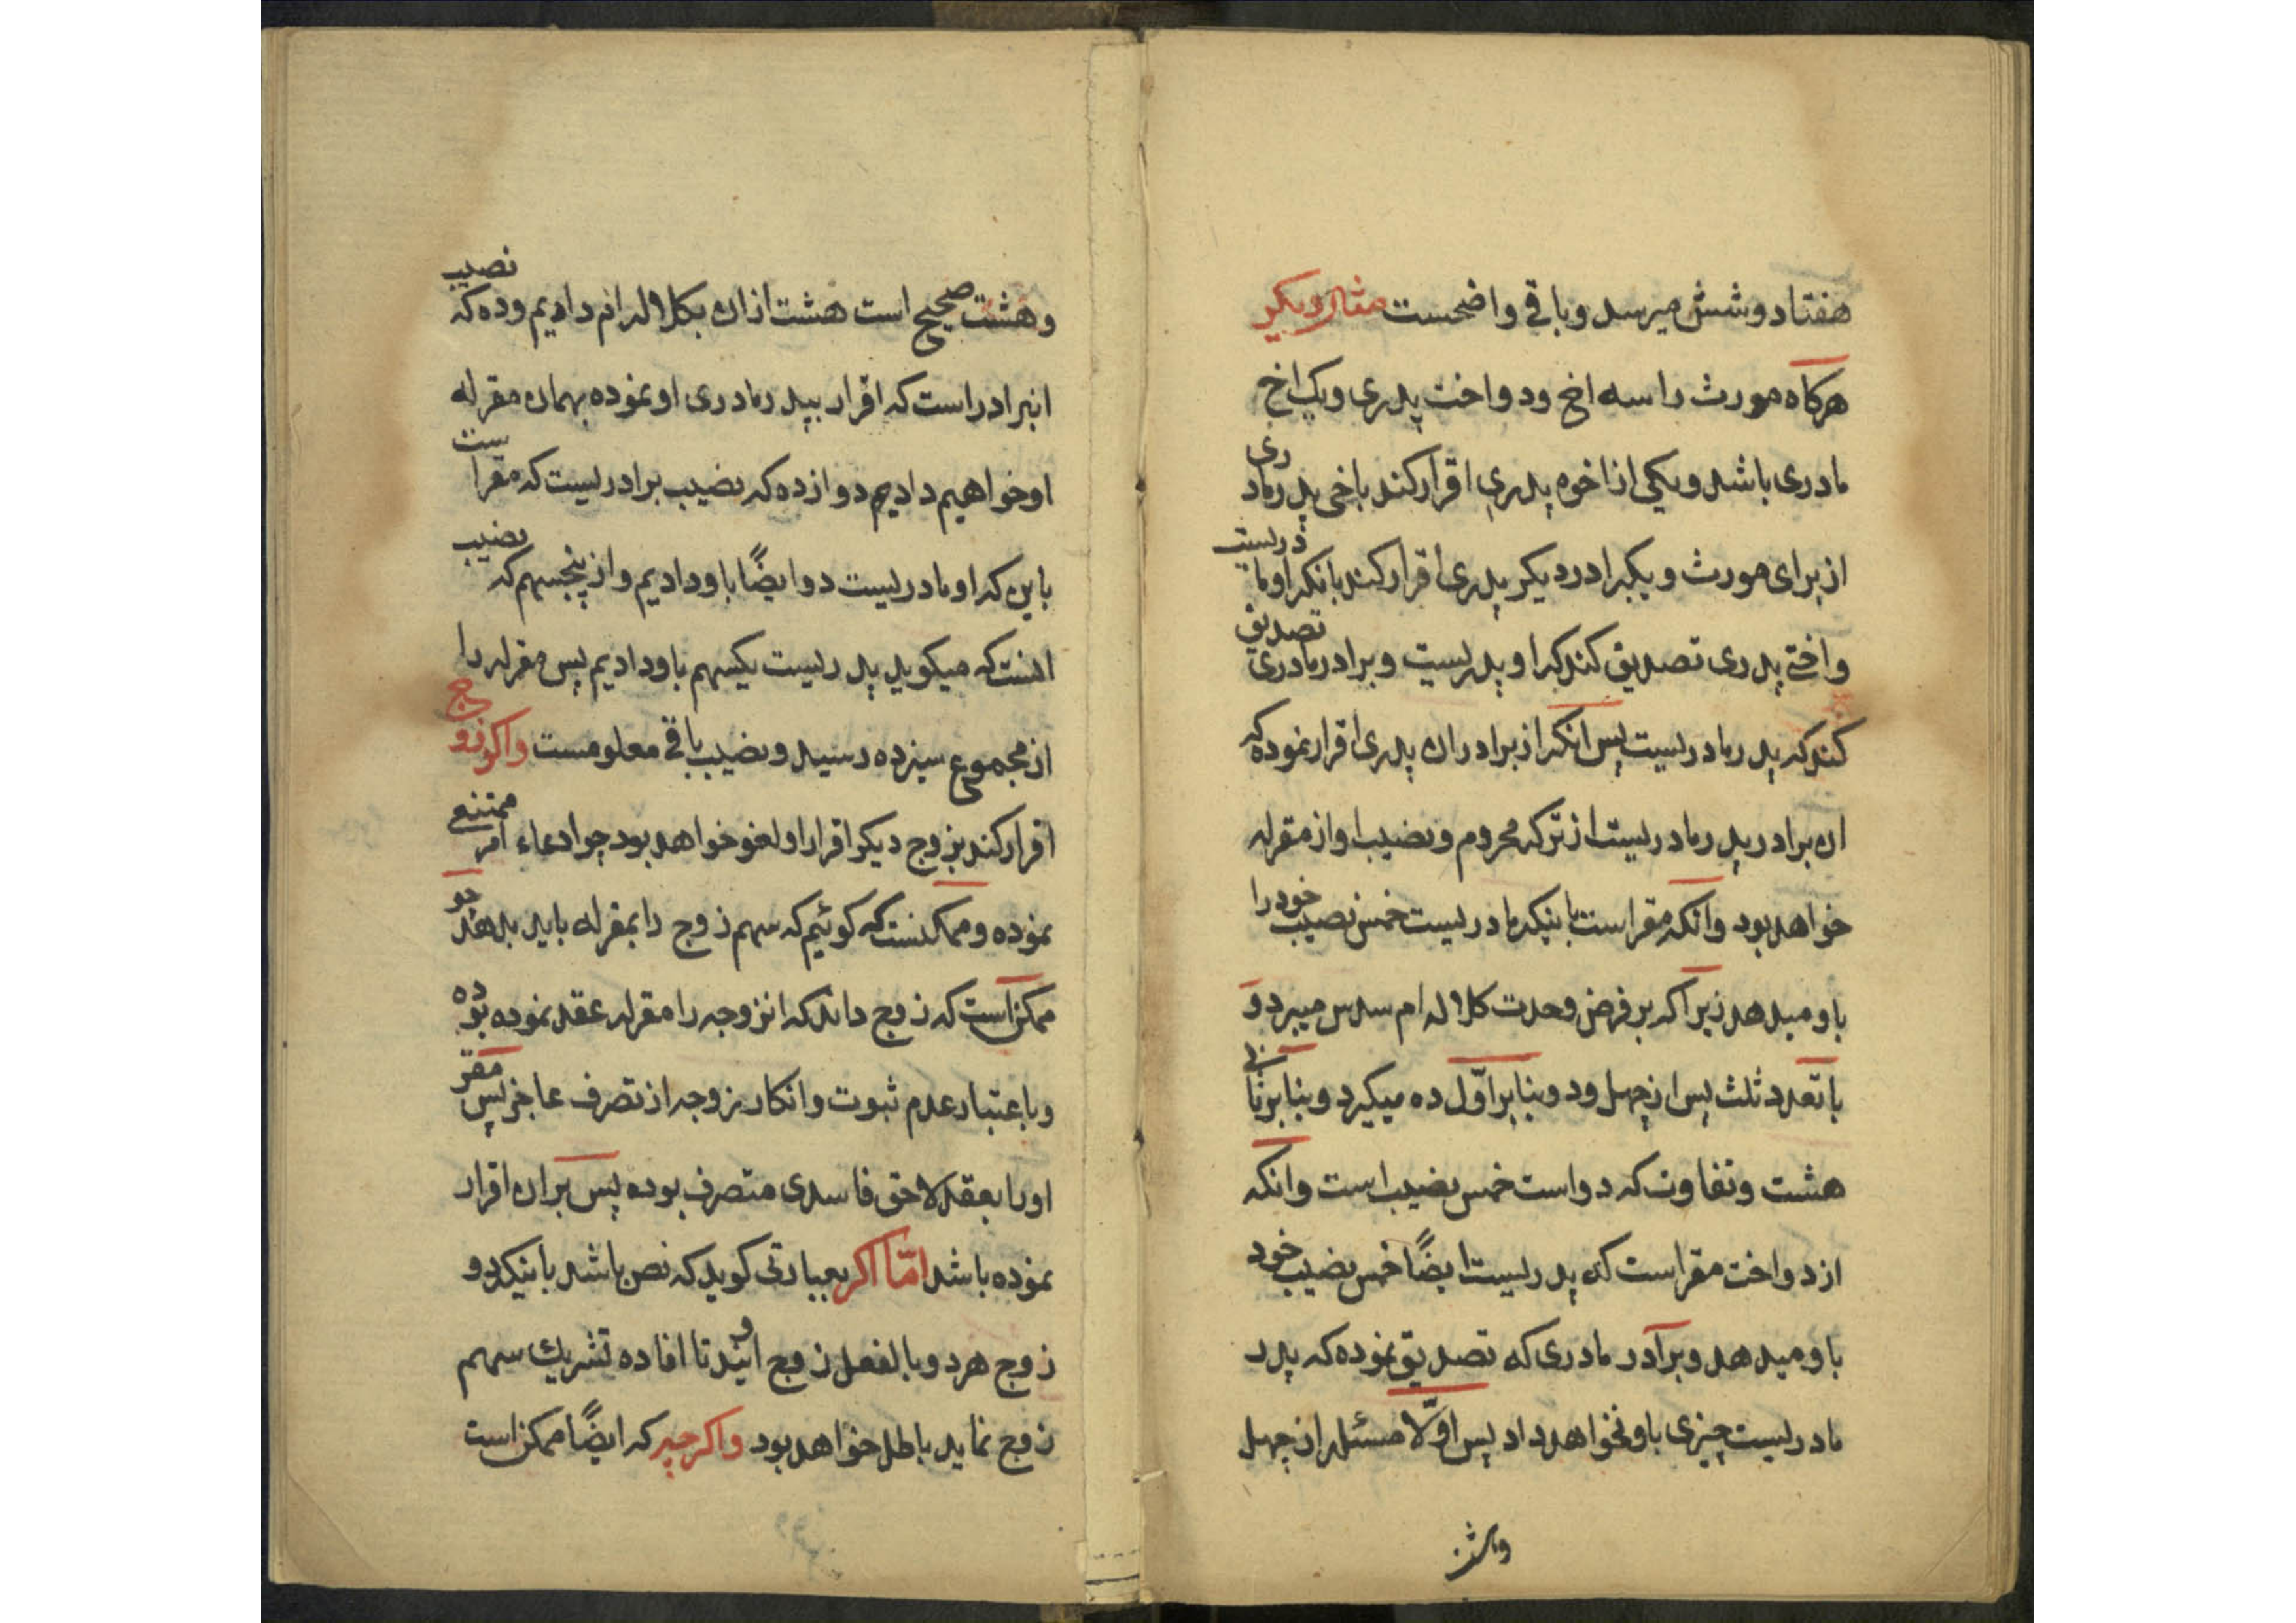 هفتاد و شش میرسد و باقی واضحست مثال دیکر
هرکاه مورث را سه اخ و دو اخت پدری و یک اخ
مادری باشد و یکی از اخوه پدری اقرار کند باخی پدر مادری
از برای مورث و یکبرادر دیکر پدری اقرار کند بانکه او مادریست
و اختی پدری تصدیق کند که او پدریست و برادر مادری تصدیق
کند که پدر مادریست پس انکه از برادران پدری اقرار نموده که
ان برادر پدر مادریست از ترکه محروم و نصیب او از مقرله
خواهد بود و انکه مقر است باینکه مادریست خمس نصیب خود را
باو میدهد زیرا که بر فرض وحدت کلاله ام سدس میبرد و
با تعدد ثلث پس از چهل و دو بنا بر اوّل ده میکیرد و بنا بر ثانی
هشت و تفاوت که دو است خمس نصیب است و انکه
از دو اخت مقر است که پدریست ایضًا خمس نصیب خود
باو میدهد و برادر مادری که تصدیق نموده که پدر
مادریست چیزی باو نخواهد داد پس اوّلا مسئله از چهل
وهشت
و هشت صحیح است هشت از ان بکلاله ام دادیم و ده که نصیب
انبرادر است که اقرار بپدر مادری او نموده بهمان مقرله
او خواهیم دادیم دوازده که نصیب برادریست که مقر است
باین که او مادریست دو ایضًا باو دادیم و از پنجسهم که نصیب
انست که میکوید پدریست یکسهم باو دادیم پس مقرله را
از مجموع سیزده رسید و نصیب باقی معلومست و اکر زوج
اقرار کند بزوج دیکر اقرار او لغو خواهد بود چو ادعاء امر ممتنعی
نموده و ممکنست که کوئیم که سهم زوج را بمقرله باید بدهد چو
ممکن است که زوج داند که انزوجه را مقرله عقد نموده بوده
و باعتبار عدم ثبوت و انکار زوجه از تصرف عاجز پس مقر
او را بعقد لاحق فاسدی متصرف بوده پس بر ان اقرار
نموده باشد امّا اکر بعبارتی کوید که نص باشد باینکه دو
زوج هر دو بالفعل زوج اویند تا افاده تشریك سهم
زوج نماید باطل خواهد بود و اکر چه که ایضًا ممکن است